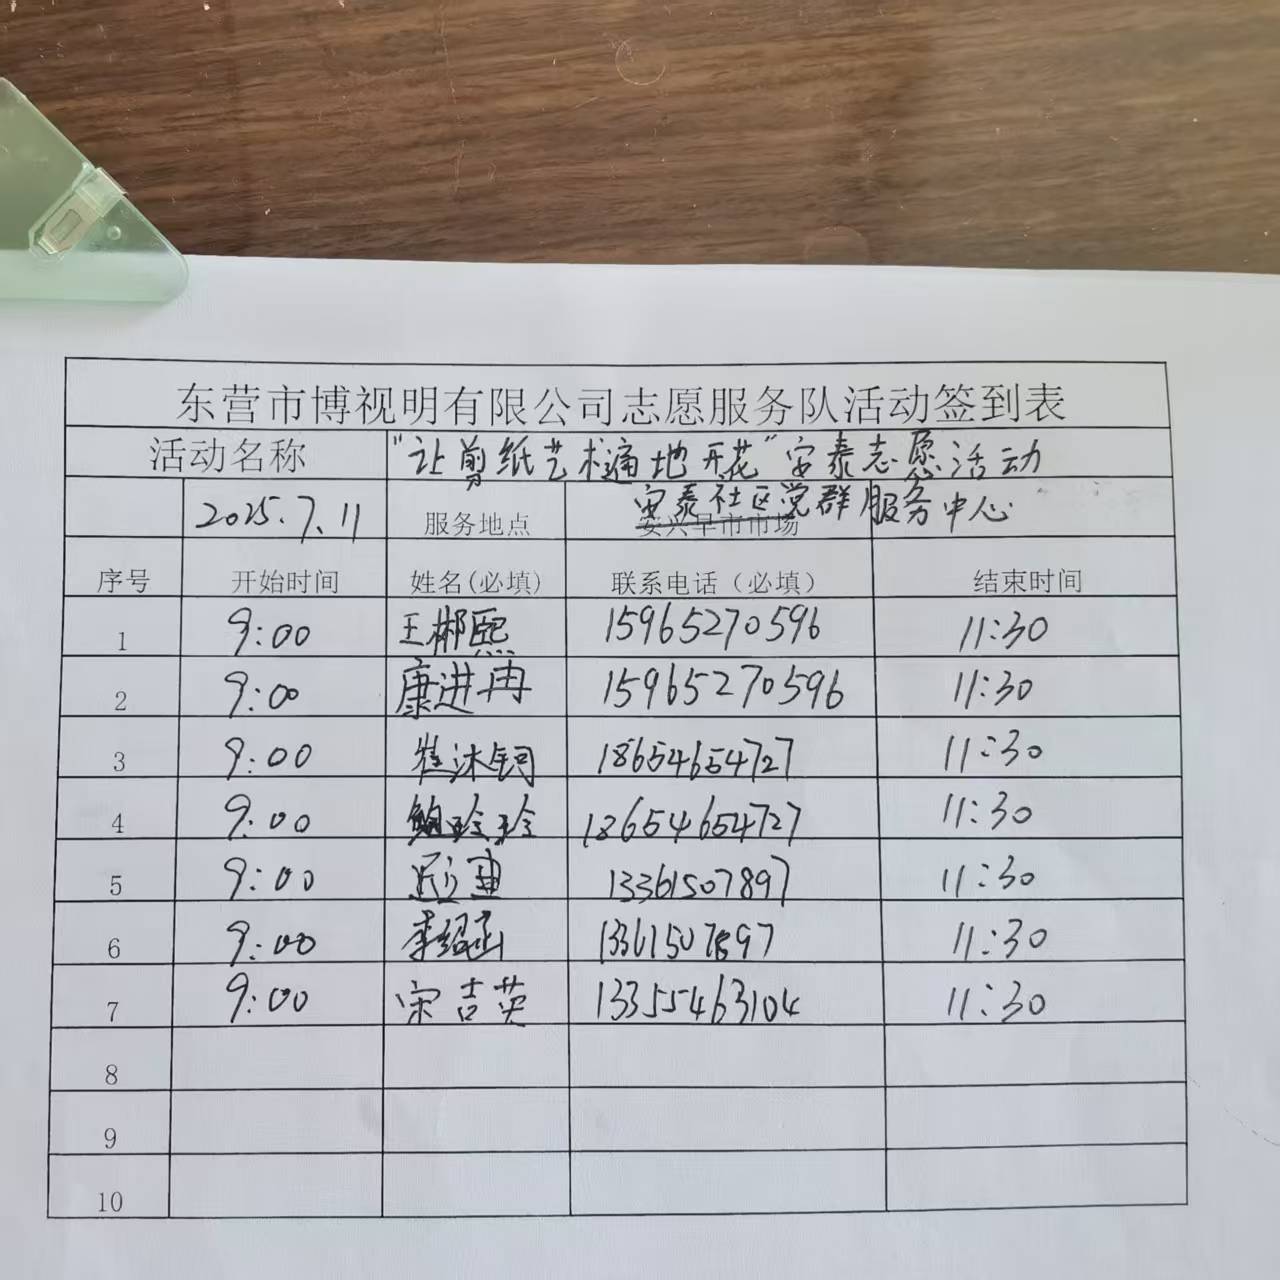 东营市博视明有限公司志愿服务队活动签到表
活动名称 "让剪纸艺术遍地开花"安泰志愿活动
2025.7.11 服务地点 安泰社区党群服务中心
安兴早市市场
序号 开始时间 姓名(必填) 联系电话(必填) 结束时间
1 9:00 王郴熙 15965270596 11:30
2 9:00 康进冉 15965270596 11:30
3 9:00 崔沐钶 18654654727 11:30
4 9:00 鲍玲玲 18654654727 11:30
5 9:00 13361507897 11:30
6 9:00 李绍函 13361507897 11:30
7 9:00 宋吉英 13355463104 11:30
8
9
10